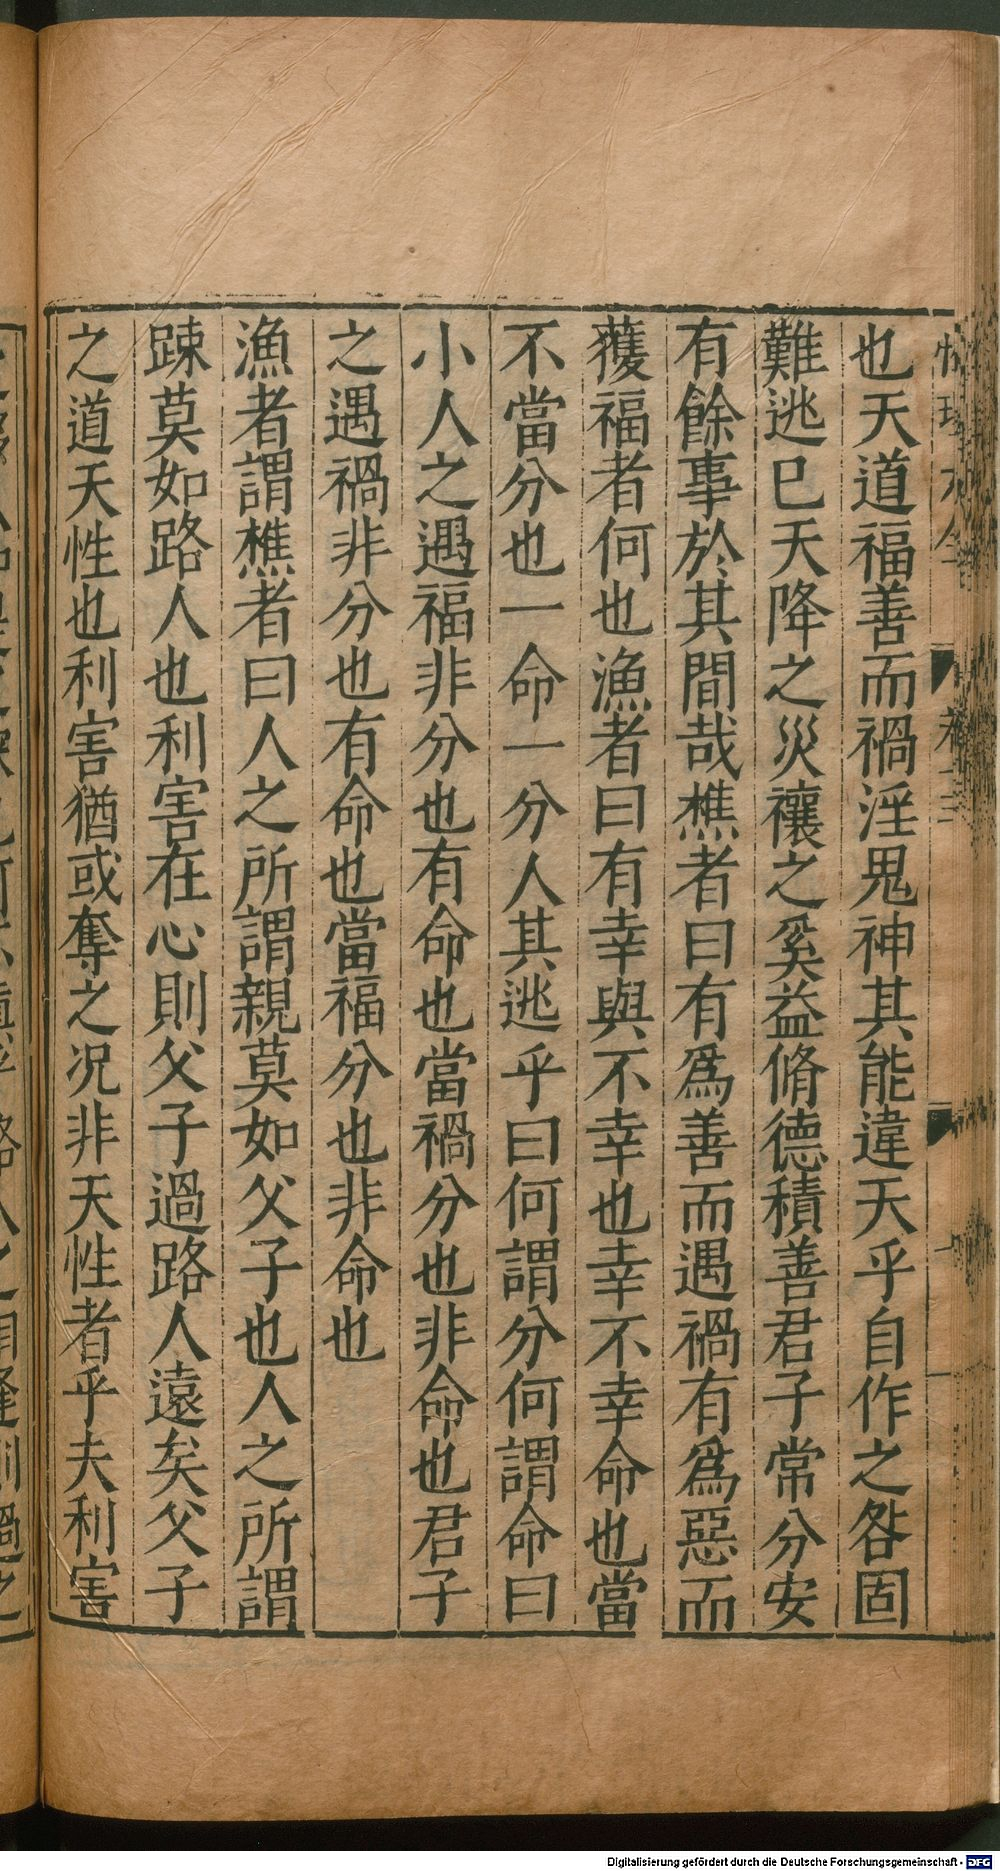 也天道福善而禍淫鬼神其能違天乎自作之咎固
難逃已天降之災禳之奚益脩德積善君子常分安
有餘事於其間哉樵者曰有爲善而遇禍有爲惡而
獲福者何也漁者曰有幸與不幸也幸不幸命也當
不當分也一命一分人其逃乎曰何謂分何謂命曰
小人之遇福非分也有命也當禍分也非命也君子
之遇禍非分也有命也當福分也非命也
漁者謂樵者曰人之所謂親莫如父子也人之所謂
踈莫如路人也利害在心則父子過路人遠矣父子
之道天性也利害猶或奪之况非天性者乎夫利害
Digitalisierung gefördert durch die Deutsche Forschungsgemeinschaft - DFG